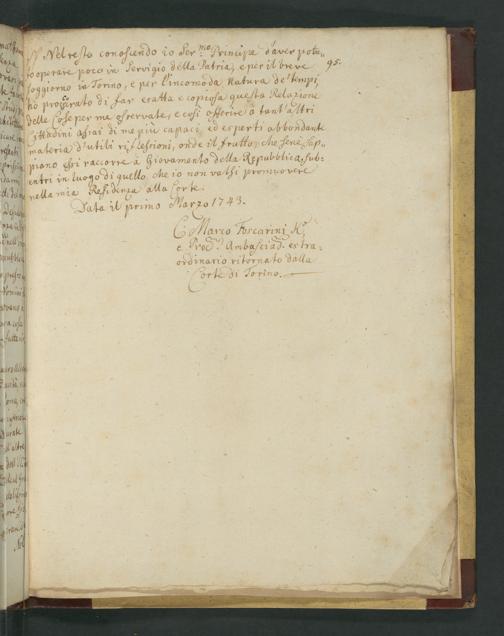 Nel resto conoscendo io Ser.mo Principe d'aver potu=
to operare poco in Servigio della Patria, e per il breve
soggiorno in Torino, e per l'incomoda natura de' tempi,
hò procurato di far esatta e copiosa questa Relazione
delle Cose per me osservate, e così offerire a tant'altri
Cittadini assai di me più capaci, ed esperti abbondante
materia d'utili riflessioni, onde il frutto, che sene sap=
piano essi raccorre à Giovamento della Repubblica, sub=
entri in luogo di quello, che io non valsi promuovere
nella mia Residenza alla Corte.
Data il primo Marzo 1743.
95.
Marco Foscarini K.r
e Proc.r Ambasciad.r estra=
ordinario ritornato dalla
Corte di Torino.